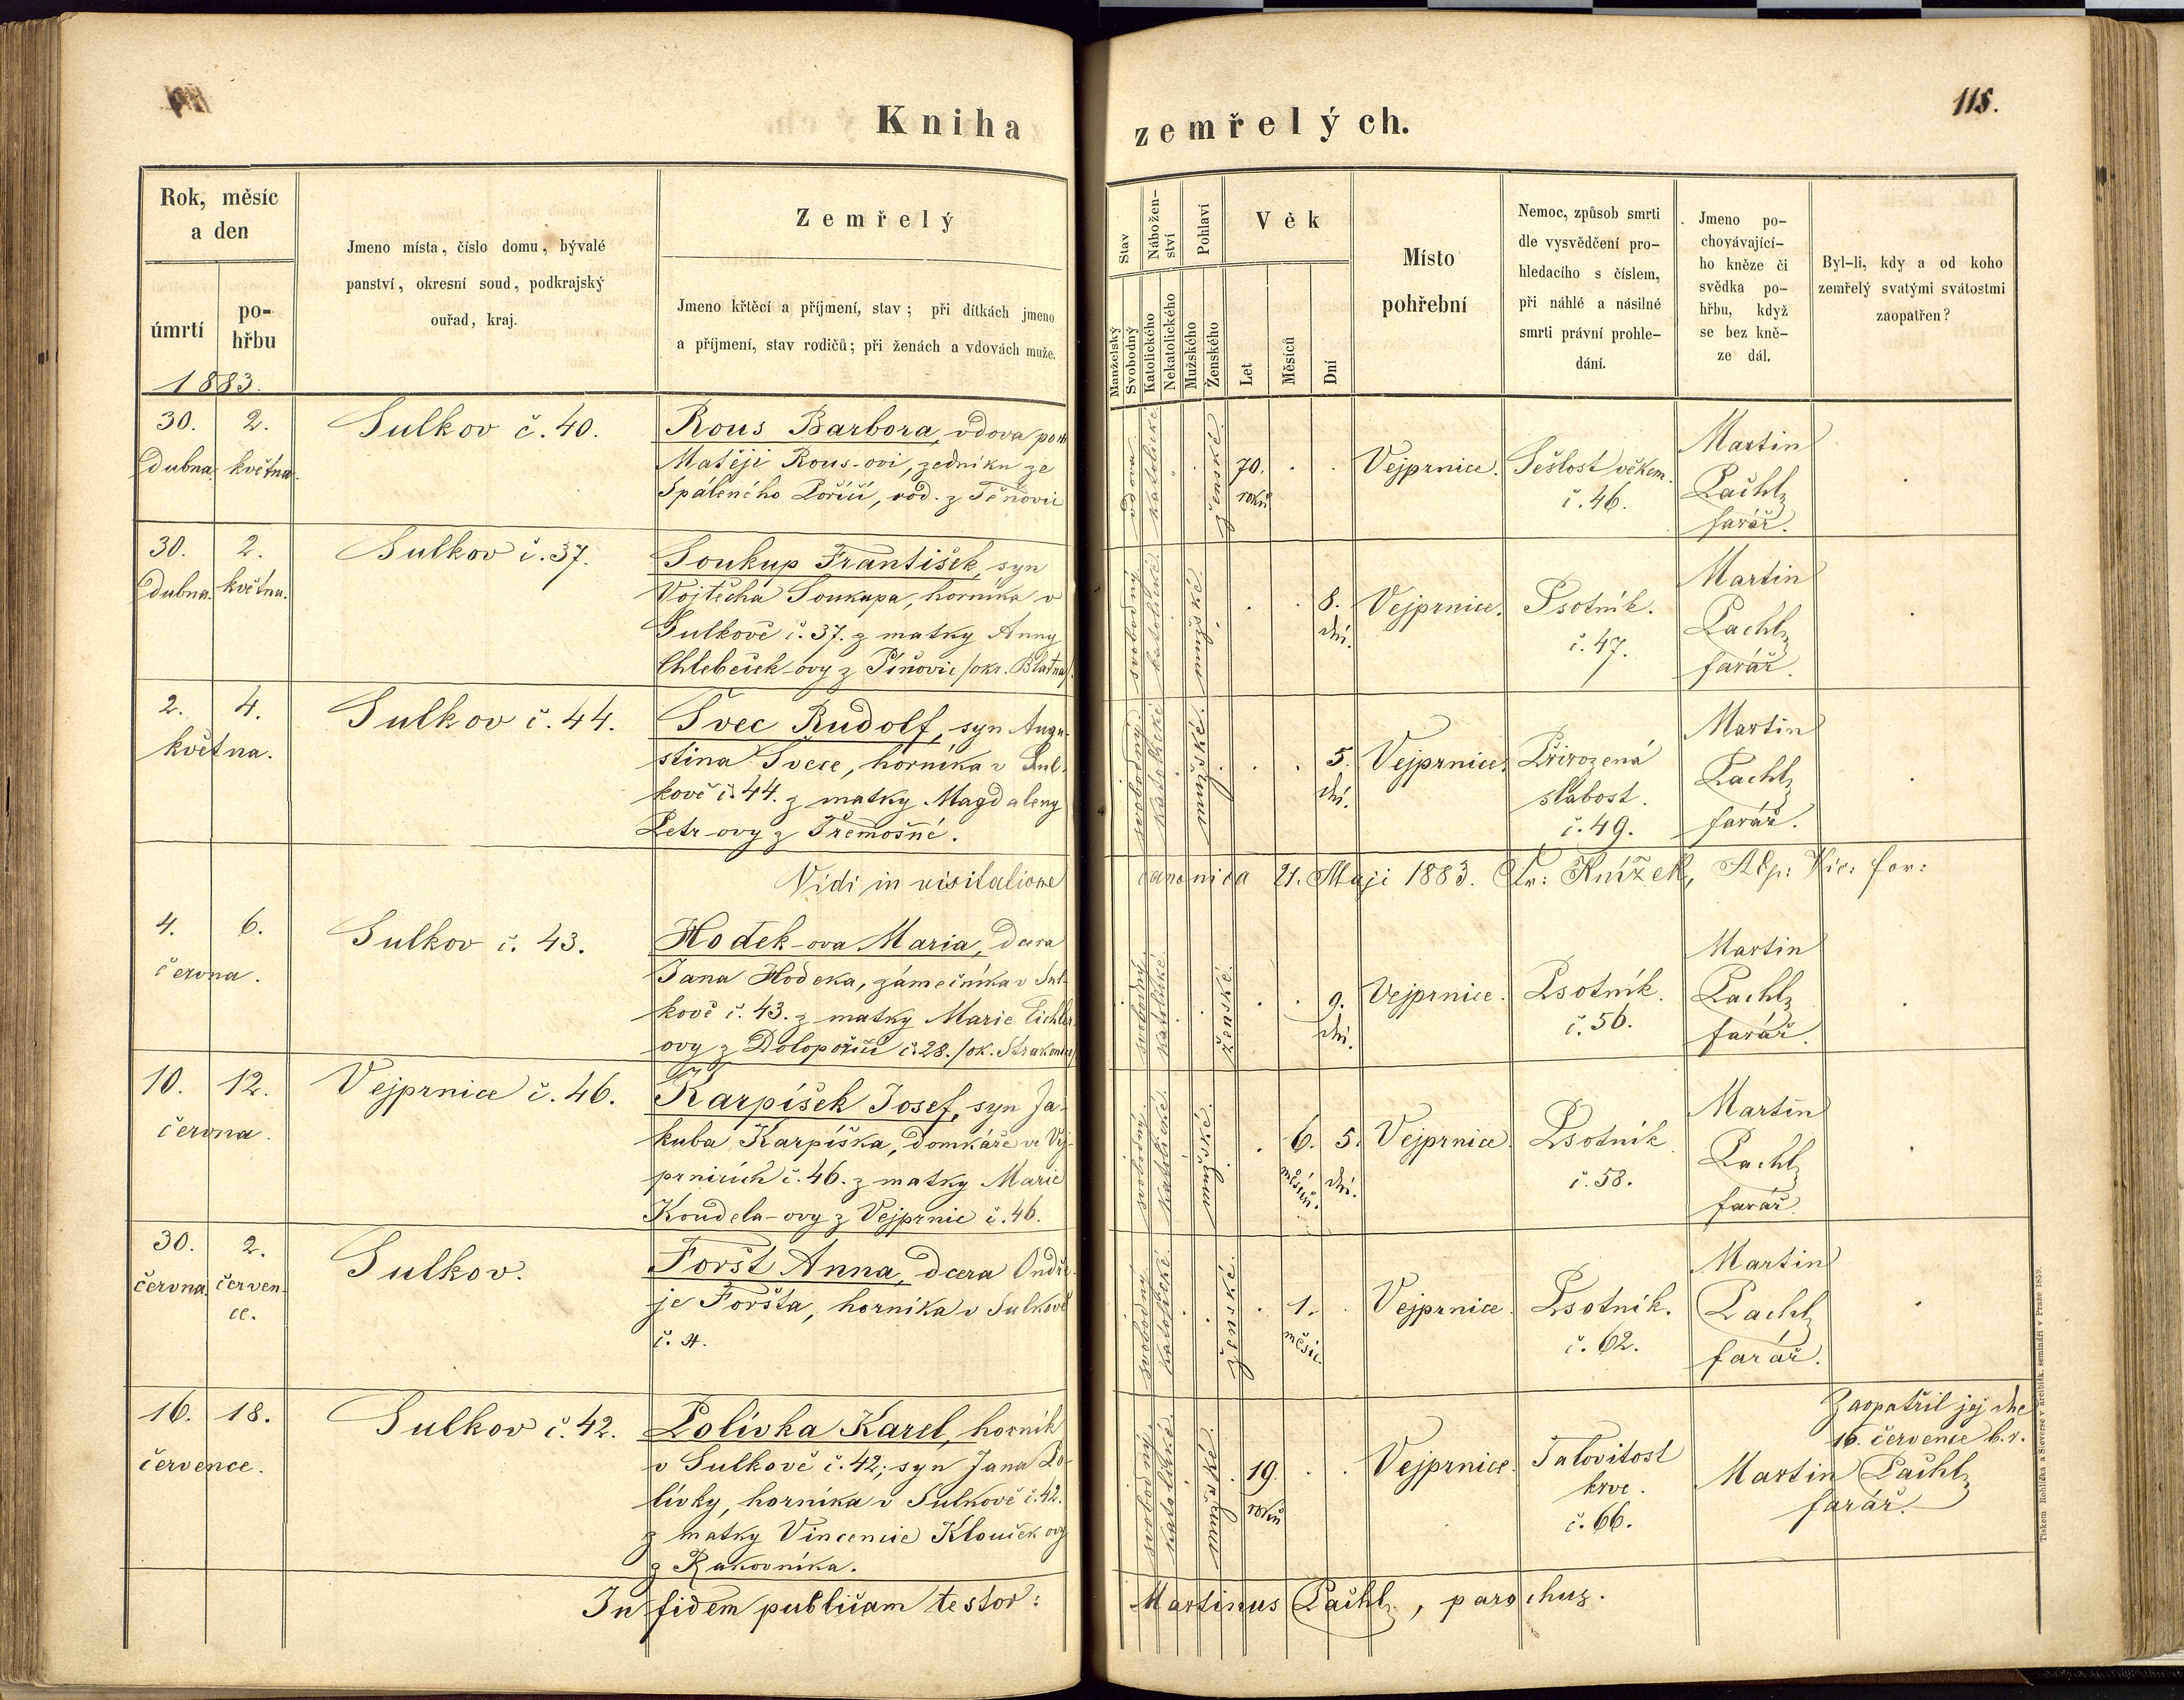 Kniha zemřelých.
115.
Rok, měsíc
a den
úmrtí
po-
hřbu
1883.
Jmeno místa, číslo domu, bývalé
panství, okresní soud, podkrajský
ouřad, kraj.
Zemřelý
Jmeno křtěcí a příjmení, stav; při dítkách jmeno
a příjmení, stav rodičů; při ženách a vdovách muže.
Stav
Manželský
Svobodný
Nábožen-
ství
Katolického
Nekatolického
Pohlaví
Mužského
Ženského
Věk
Let
Měsíců
Dní
Místo
pohřební
Nemoc, způsob smrti
dle vysvědčení pro-
hledacího s číslem,
při náhlé a násilné
smrti právní prohle-
dání.
Jmeno po-
chovávající-
ho kněze či
svědka po-
hřbu, když
se bez kně-
ze dál.
Byl-li, kdy a od koho
zemřelý svatými svátostmi
zaopatřen?
30.
dubna.
2.
května.
Sulkov č. 40.
Rous Barbora, vdova po
Matěji Rous-ovi, zedníku ze
Spáleného Poříčí, rod. z Těňovic
vdova.
katolické.
ženské.
70.
roků
Vejprnice.
Sešlost věkem.
č. 46.
Martin
Pachl,
farář.
30.
dubna.
2.
května.
Sulkov č. 37.
Soukup František, syn
Vojtěcha Soukupa, horníka v
Sulkově č. 37. z matky Anny
Chlebeček-ovy z Piňovic /okr. Blatná/.
svobodný.
katolické.
mužské.
8.
dní.
Vejprnice.
Psotník.
č. 47.
Martin
Pachl,
farář.
2.
4.
května.
Sulkov č. 44.
Švec Rudolf, syn Augu-
stina Švece, horníka v Sul-
kově č. 44. z matky Magdaleny
Petr-ovy z Třemošné.
svobodný.
katolické.
mužské.
5.
dní.
Vejprnice.
Přirozená
slabost.
č. 49.
Martin
Pachl,
farář.
Vidi in visitatione canonica 21. Maji 1883. Fr: Knížek, Aep: Vic: for:
4.
6.
června.
Sulkov č. 43.
Hodek-ova Maria, dcera
Jana Hodeka, zámečníka v Sul-
kově č. 43. z matky Marie Eichler-
ovy z Dolopoříčí č. 28. /ok. Strakonice/
svobodný.
katolické.
ženské.
9.
dní.
Vejprnice.
Psotník.
č. 56.
Martin
Pachl,
farář.
10.
12.
června.
Vejprnice č. 46.
Karpíšek Josef, syn Ja-
kuba Karpíška, domkáře ve Vej-
prnicích č. 46. z matky Marie
Koudela-ovy z Vejprnic č. 46.
svobodný.
katolické.
mužské.
6.
měsíců.
5.
dní.
Vejprnice.
Psotník
č. 58.
Martin
Pachl,
farář.
30.
června.
2.
červen-
ce.
Sulkov.
Foršt Anna, dcera Ondře-
je Foršta, horníka v Sulkově
č. 4.
svobodný.
katolické.
ženské.
1.
měsíc.
Vejprnice.
Psotník.
č. 62.
Martin
Pachl,
farář.
16.
18.
července.
Sulkov č. 42.
Polívka Karel, horník
v Sulkově č. 42; syn Jana Po-
lívky, horníka v Sulkově č. 42.
z matky Vincencie Klouček ovy
z Rakovníka.
svobodný.
katolické.
mužské.
19.
roků
Vejprnice.
Jalovitost
krve.
č. 66.
Zaopatřil jej dne
16. července b. r.
Martin Pachl,
farář.
In fidem publicam testor: Martinus Pachl, parochus.
Tiskem Rohlíčka a Sieverse v arcibisk. semináři v Praze 1859.